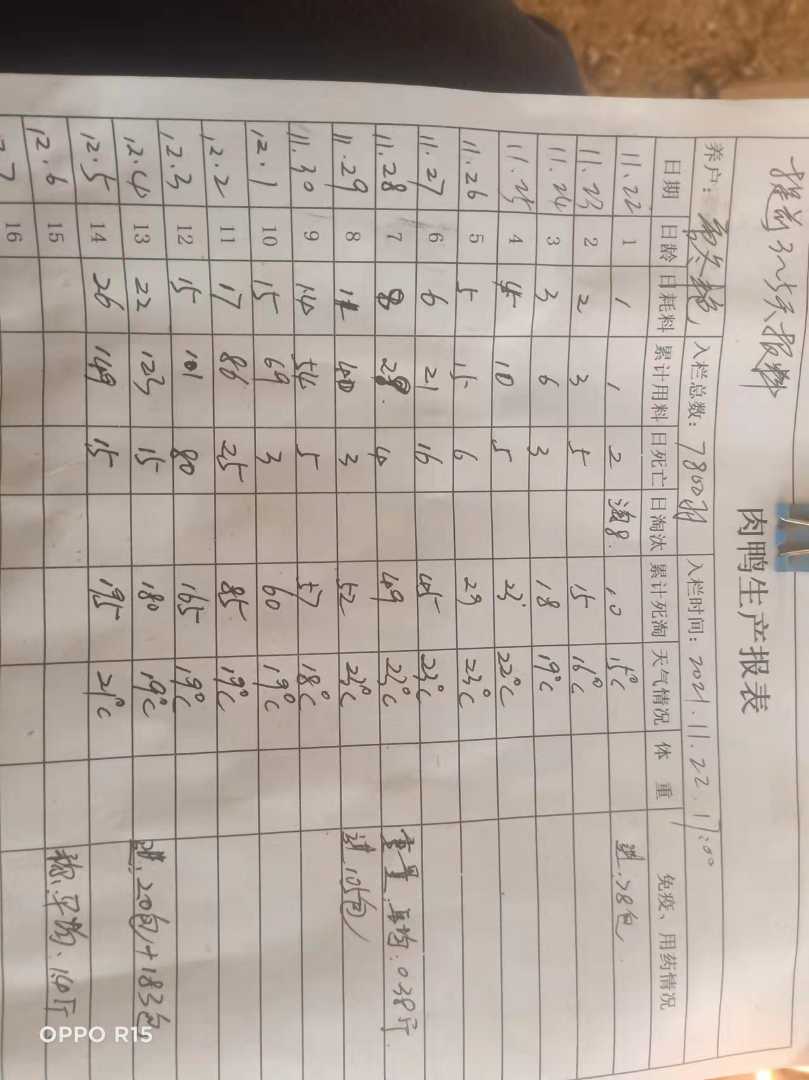 提前3~5天报料
肉鸭生产报表
养户： 入栏总数：7800羽 入栏时间：2021.11.22 17:00
日期 日龄 日耗料 累计用料 日死亡 日淘汰 累计死淘 天气情况 体重 免疫、用药情况
11.22 1 1 1 2 淘8. 10 15℃ 进78包
11.23 2 2 3 5 15 16℃
11.24 3 3 6 3 18 19℃
11.25 4 4 10 5 23 22℃
11.26 5 5 15 6 29 23℃
11.27 6 6 21 16 45 23℃
11.28 7 8 29 4 49 23℃ 重量.平均:0.38斤
11.29 8 11 40 3 52 23℃ 进105包
11.30 9 14 54 5 57 18℃
12.1 10 15 69 3 60 19℃
12.2 11 17 86 25 85 19℃
12.3 12 15 101 80 165 19℃
12.4 13 22 123 15 180 19℃ 进.20包+183包
12.5 14 26 149 15 195 21℃
12.6 15 称.平均:1.60斤
12.7 16
OPPO R15